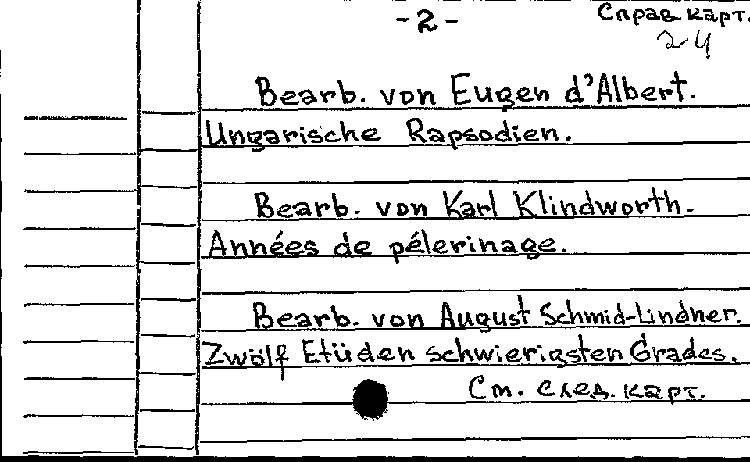 -2-
Справ. карт.
24
Bearb. von Eugen d'Albert.
Ungarische Rapsodien.
Bearb. von Karl Klindworth.
Années de pélerinage.
Bearb. von August Schmid-Lindner.
Zwölf Etüden schwierigsten Grades.
См. след. карт.